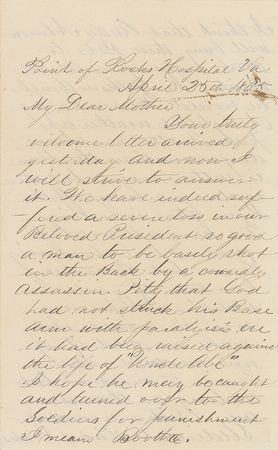 Point of Rocks Hospital Va
April 25th 1865
My Dear Mother
Your truly
welcome letter arrived
yesterday and now I
will strive to answer
it. We have indeed suf
-fered a severe loss in our
Beloved President so good
a man to be basely shot
in the Back by a cowardly
Assassin. Pity that God
had not struck his Base
arm with paralysis ere
it had been raised against
the life of "Uncle Abe"
I hope he may be caught
and turned over to the
Soldiers for punishment
I mean Boothe.